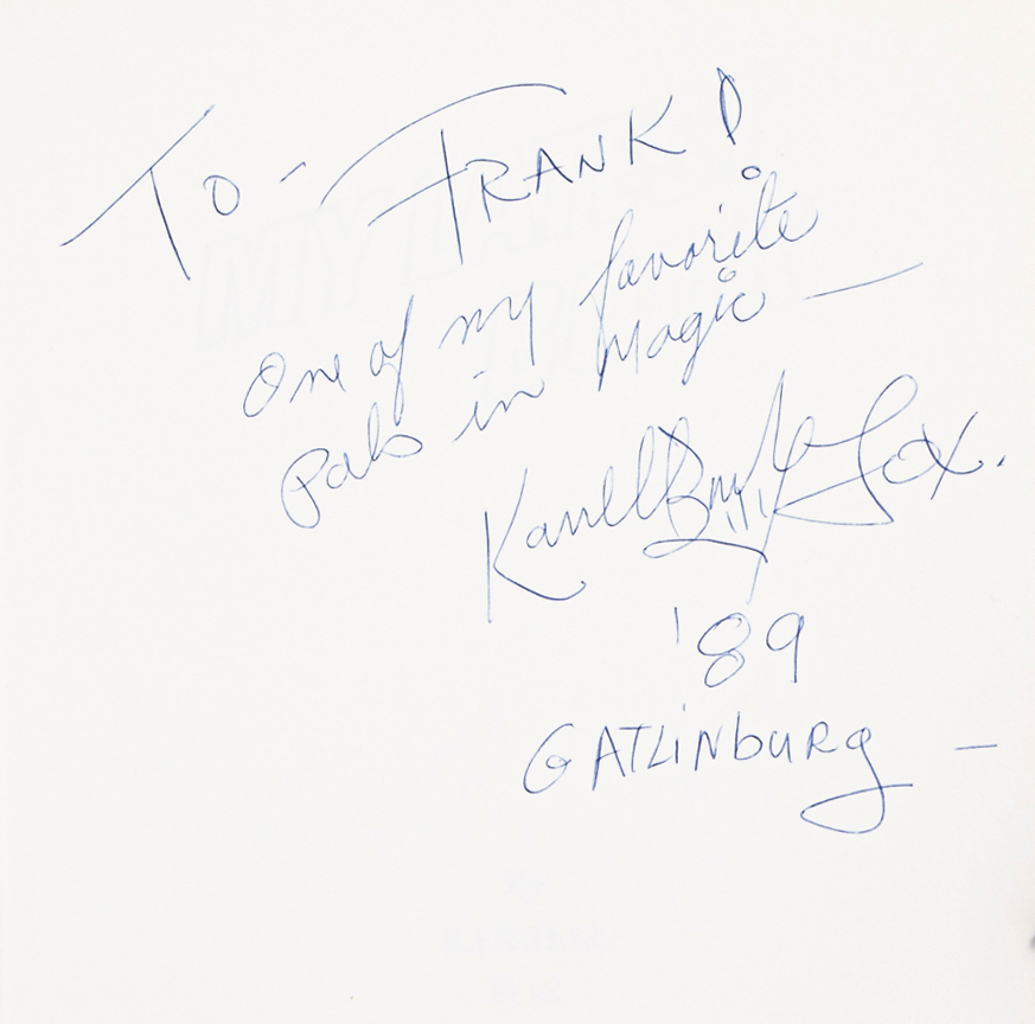 To - FRANK!
One of my favorite
pals in magic —
Karrell Fox.
'89
GATLINBURG —